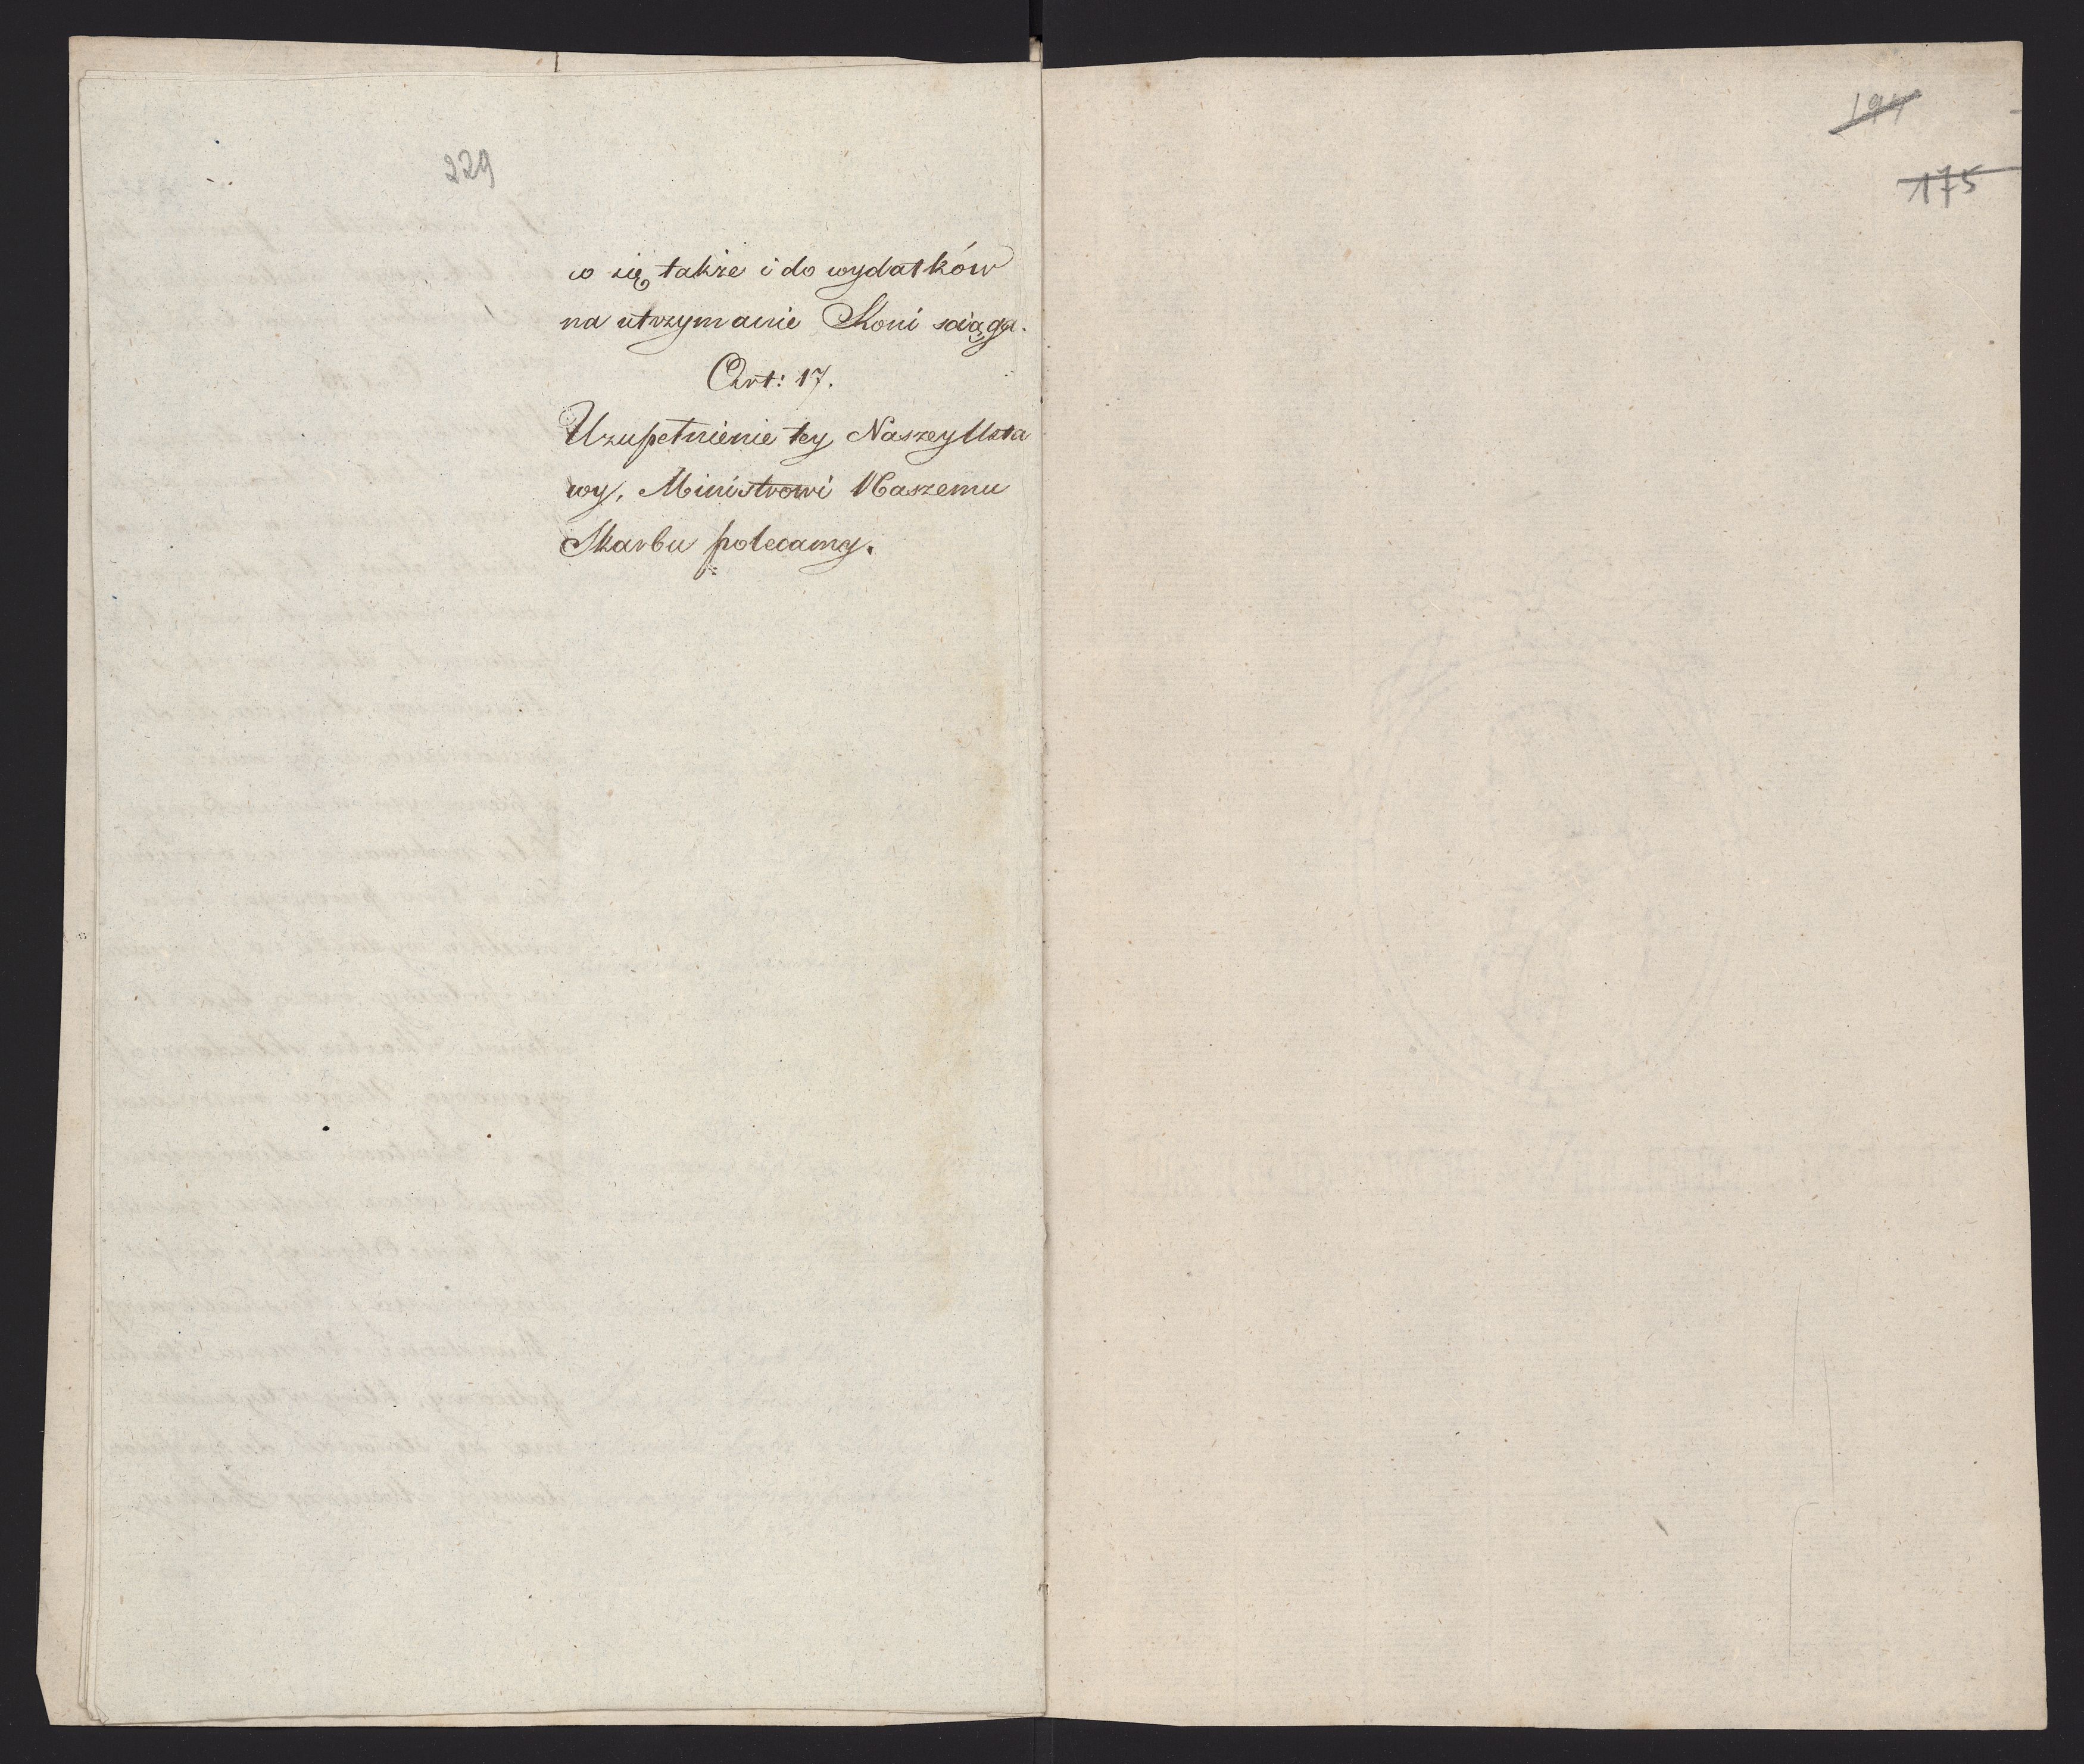 229
co się także i do wydatków
na utrzymanie Koni sciąga.
Art: 17.
Uzupełnienie tey Naszey Usta
wy, Ministrowi Naszemu
Skarbu polecamy.
175